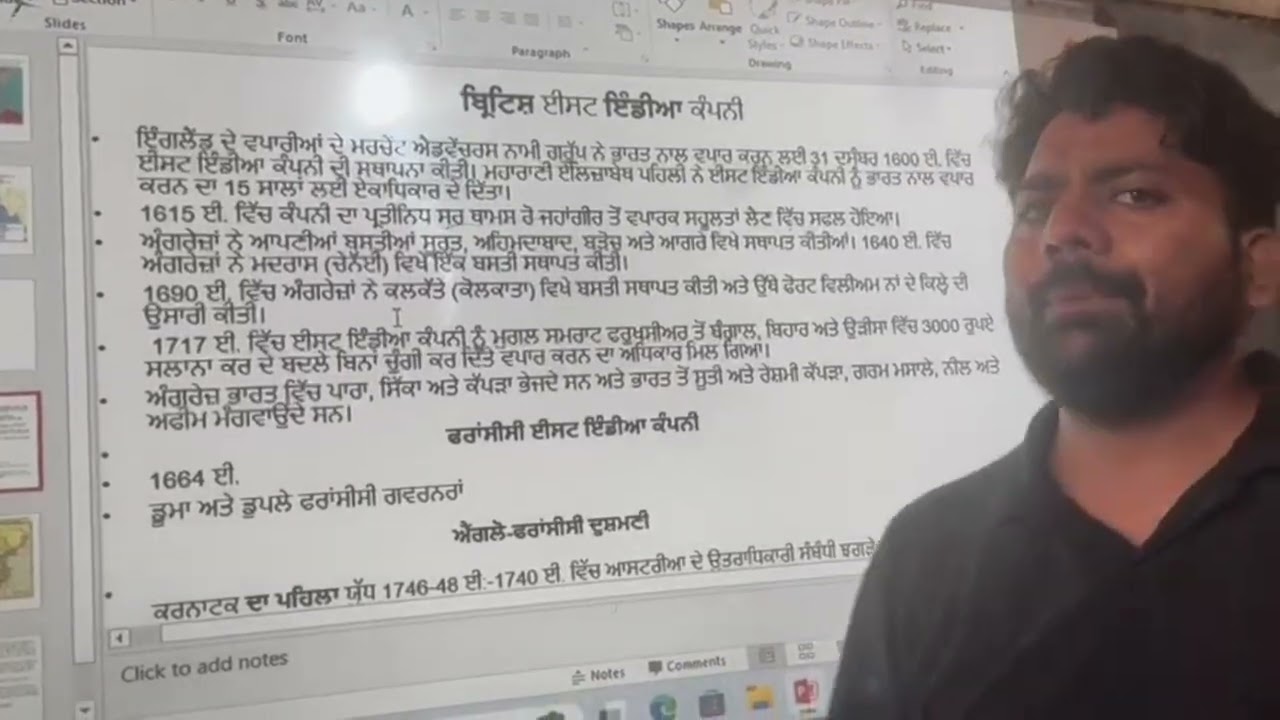 Slides
Font
Paragraph
Shapes Arrange Quick Styles
Shape Outline
Shape Effects
Drawing
Replace
Select
Editing
ਬ੍ਰਿਟਿਸ਼ ਈਸਟ ਇੰਡੀਆ ਕੰਪਨੀ
ਇੰਗਲੈਂਡ ਦੇ ਵਪਾਰੀਆਂ ਦੇ ਮਰਚੇਂਟ ਐਡਵੇਂਚਰਸ ਨਾਮੀ ਗਰੁੱਪ ਨੇ ਭਾਰਤ ਨਾਲ ਵਪਾਰ ਕਰਨ ਲਈ 31 ਦਸੰਬਰ 1600 ਈ. ਵਿੱਚ
ਈਸਟ ਇੰਡੀਆ ਕੰਪਨੀ ਦੀ ਸਥਾਪਨਾ ਕੀਤੀ। ਮਹਾਰਾਣੀ ਈਲਿਜ਼ਾਬੇਥ ਪਹਿਲੀ ਨੇ ਈਸਟ ਇੰਡੀਆ ਕੰਪਨੀ ਨੂੰ ਭਾਰਤ ਨਾਲ ਵਪਾਰ
ਕਰਨ ਦਾ 15 ਸਾਲਾਂ ਲਈ ਏਕਾਧਿਕਾਰ ਦੇ ਦਿੱਤਾ।
1615 ਈ. ਵਿੱਚ ਕੰਪਨੀ ਦਾ ਪ੍ਰਤੀਨਿਧ ਸਰ ਥਾਮਸ ਰੋ ਜਹਾਂਗੀਰ ਤੋਂ ਵਪਾਰਕ ਸਹੂਲਤਾਂ ਲੈਣ ਵਿੱਚ ਸਫਲ ਹੋਇਆ।
ਅੰਗਰੇਜ਼ਾਂ ਨੇ ਆਪਣੀਆਂ ਬਸਤੀਆਂ ਸੂਰਤ, ਅਹਿਮਦਾਬਾਦ, ਬੜੋਚ ਅਤੇ ਆਗਰੇ ਵਿਖੇ ਸਥਾਪਤ ਕੀਤੀਆਂ। 1640 ਈ. ਵਿੱਚ
ਅੰਗਰੇਜ਼ਾਂ ਨੇ ਮਦਰਾਸ (ਚੇਨੰਈ) ਵਿਖੇ ਇੱਕ ਬਸਤੀ ਸਥਾਪਤ ਕੀਤੀ।
1690 ਈ. ਵਿੱਚ ਅੰਗਰੇਜ਼ਾਂ ਨੇ ਕਲਕੱਤੇ (ਕੋਲਕਾਤਾ) ਵਿਖੇ ਬਸਤੀ ਸਥਾਪਤ ਕੀਤੀ ਅਤੇ ਉੱਥੇ ਫੋਰਟ ਵਿਲੀਅਮ ਨਾਂ ਦੇ ਕਿਲ੍ਹੇ ਦੀ
ਉਸਾਰੀ ਕੀਤੀ।
1717 ਈ. ਵਿੱਚ ਈਸਟ ਇੰਡੀਆ ਕੰਪਨੀ ਨੂੰ ਮੁਗਲ ਸਮਰਾਟ ਫਰੁਖਸੀਅਰ ਤੋਂ ਬੰਗਾਲ, ਬਿਹਾਰ ਅਤੇ ਉੜੀਸਾ ਵਿੱਚ 3000 ਰੁਪਏ
ਸਲਾਨਾ ਕਰ ਦੇ ਬਦਲੇ ਬਿਨਾਂ ਚੁੰਗੀ ਕਰ ਦਿੱਤੇ ਵਪਾਰ ਕਰਨ ਦਾ ਅਧਿਕਾਰ ਮਿਲ ਗਿਆ।
ਅੰਗਰੇਜ਼ ਭਾਰਤ ਵਿੱਚ ਪਾਰਾ, ਸਿੱਕਾ ਅਤੇ ਕੱਪੜਾ ਭੇਜਦੇ ਸਨ ਅਤੇ ਭਾਰਤ ਤੋਂ ਸੂਤੀ ਅਤੇ ਰੇਸ਼ਮੀ ਕੱਪੜਾ, ਗਰਮ ਮਸਾਲੇ, ਨੀਲ ਅਤੇ
ਅਫੀਮ ਮੰਗਵਾਉਂਦੇ ਸਨ।
ਫਰਾਂਸੀਸੀ ਈਸਟ ਇੰਡੀਆ ਕੰਪਨੀ
1664 ਈ.
ਡੂਮਾ ਅਤੇ ਡੁਪਲੇ ਫਰਾਂਸੀਸੀ ਗਵਰਨਰਾਂ
ਐਂਗਲੋ-ਫਰਾਂਸੀਸੀ ਦੁਸ਼ਮਣੀ
ਕਰਨਾਟਕ ਦਾ ਪਹਿਲਾ ਯੁੱਧ 1746-48 ਈ:-1740 ਈ. ਵਿੱਚ ਆਸਟਰੀਆ ਦੇ ਉਤਰਾਧਿਕਾਰੀ ਸੰਬੰਧੀ ਝਗੜੇ
Click to add notes
Notes
Comments